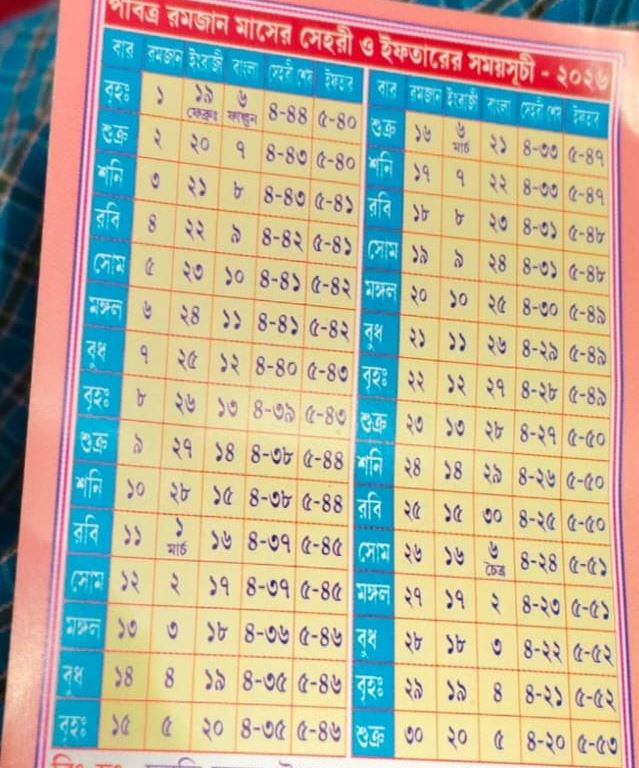 পবিত্র রমজান মাসের সেহরী ও ইফতারের সময়সূচী - ২০২৬
বার রমজান ইংরাজী বাংলা সেহরী শেষ ইফতার
বৃহঃ ১ ১৯ ফেব্রুঃ ৬ ফাল্গুন ৪-৪৪ ৫-৪০
শুক্র ২ ২০ ৭ ৪-৪৩ ৫-৪০
শনি ৩ ২১ ৮ ৪-৪৩ ৫-৪১
রবি ৪ ২২ ৯ ৪-৪২ ৫-৪১
সোম ৫ ২৩ ১০ ৪-৪১ ৫-৪২
মঙ্গল ৬ ২৪ ১১ ৪-৪১ ৫-৪২
বুধ ৭ ২৫ ১২ ৪-৪০ ৫-৪৩
বৃহঃ ৮ ২৬ ১৩ ৪-৩৯ ৫-৪৩
শুক্র ৯ ২৭ ১৪ ৪-৩৮ ৫-৪৪
শনি ১০ ২৮ ১৫ ৪-৩৮ ৫-৪৪
রবি ১১ ১ মার্চ ১৬ ৪-৩৭ ৫-৪৫
সোম ১২ ২ ১৭ ৪-৩৭ ৫-৪৫
মঙ্গল ১৩ ৩ ১৮ ৪-৩৬ ৫-৪৬
বুধ ১৪ ৪ ১৯ ৪-৩৫ ৫-৪৬
বৃহঃ ১৫ ৫ ২০ ৪-৩৫ ৫-৪৬
বার রমজান ইংরাজী বাংলা সেহরী শেষ ইফতার
শুক্র ১৬ ৬ মার্চ ২১ ৪-৩৩ ৫-৪৭
শনি ১৭ ৭ ২২ ৪-৩৩ ৫-৪৭
রবি ১৮ ৮ ২৩ ৪-৩১ ৫-৪৮
সোম ১৯ ৯ ২৪ ৪-৩১ ৫-৪৮
মঙ্গল ২০ ১০ ২৫ ৪-৩০ ৫-৪৯
বুধ ২১ ১১ ২৬ ৪-২৯ ৫-৪৯
বৃহঃ ২২ ১২ ২৭ ৪-২৮ ৫-৪৯
শুক্র ২৩ ১৩ ২৮ ৪-২৭ ৫-৫০
শনি ২৪ ১৪ ২৯ ৪-২৬ ৫-৫০
রবি ২৫ ১৫ ৩০ ৪-২৫ ৫-৫০
সোম ২৬ ১৬ ৬ চৈত্র ৪-২৪ ৫-৫১
মঙ্গল ২৭ ১৭ ২ ৪-২৩ ৫-৫১
বুধ ২৮ ১৮ ৩ ৪-২২ ৫-৫২
বৃহঃ ২৯ ১৯ ৪ ৪-২১ ৫-৫২
শুক্র ৩০ ২০ ৫ ৪-২০ ৫-৫৩